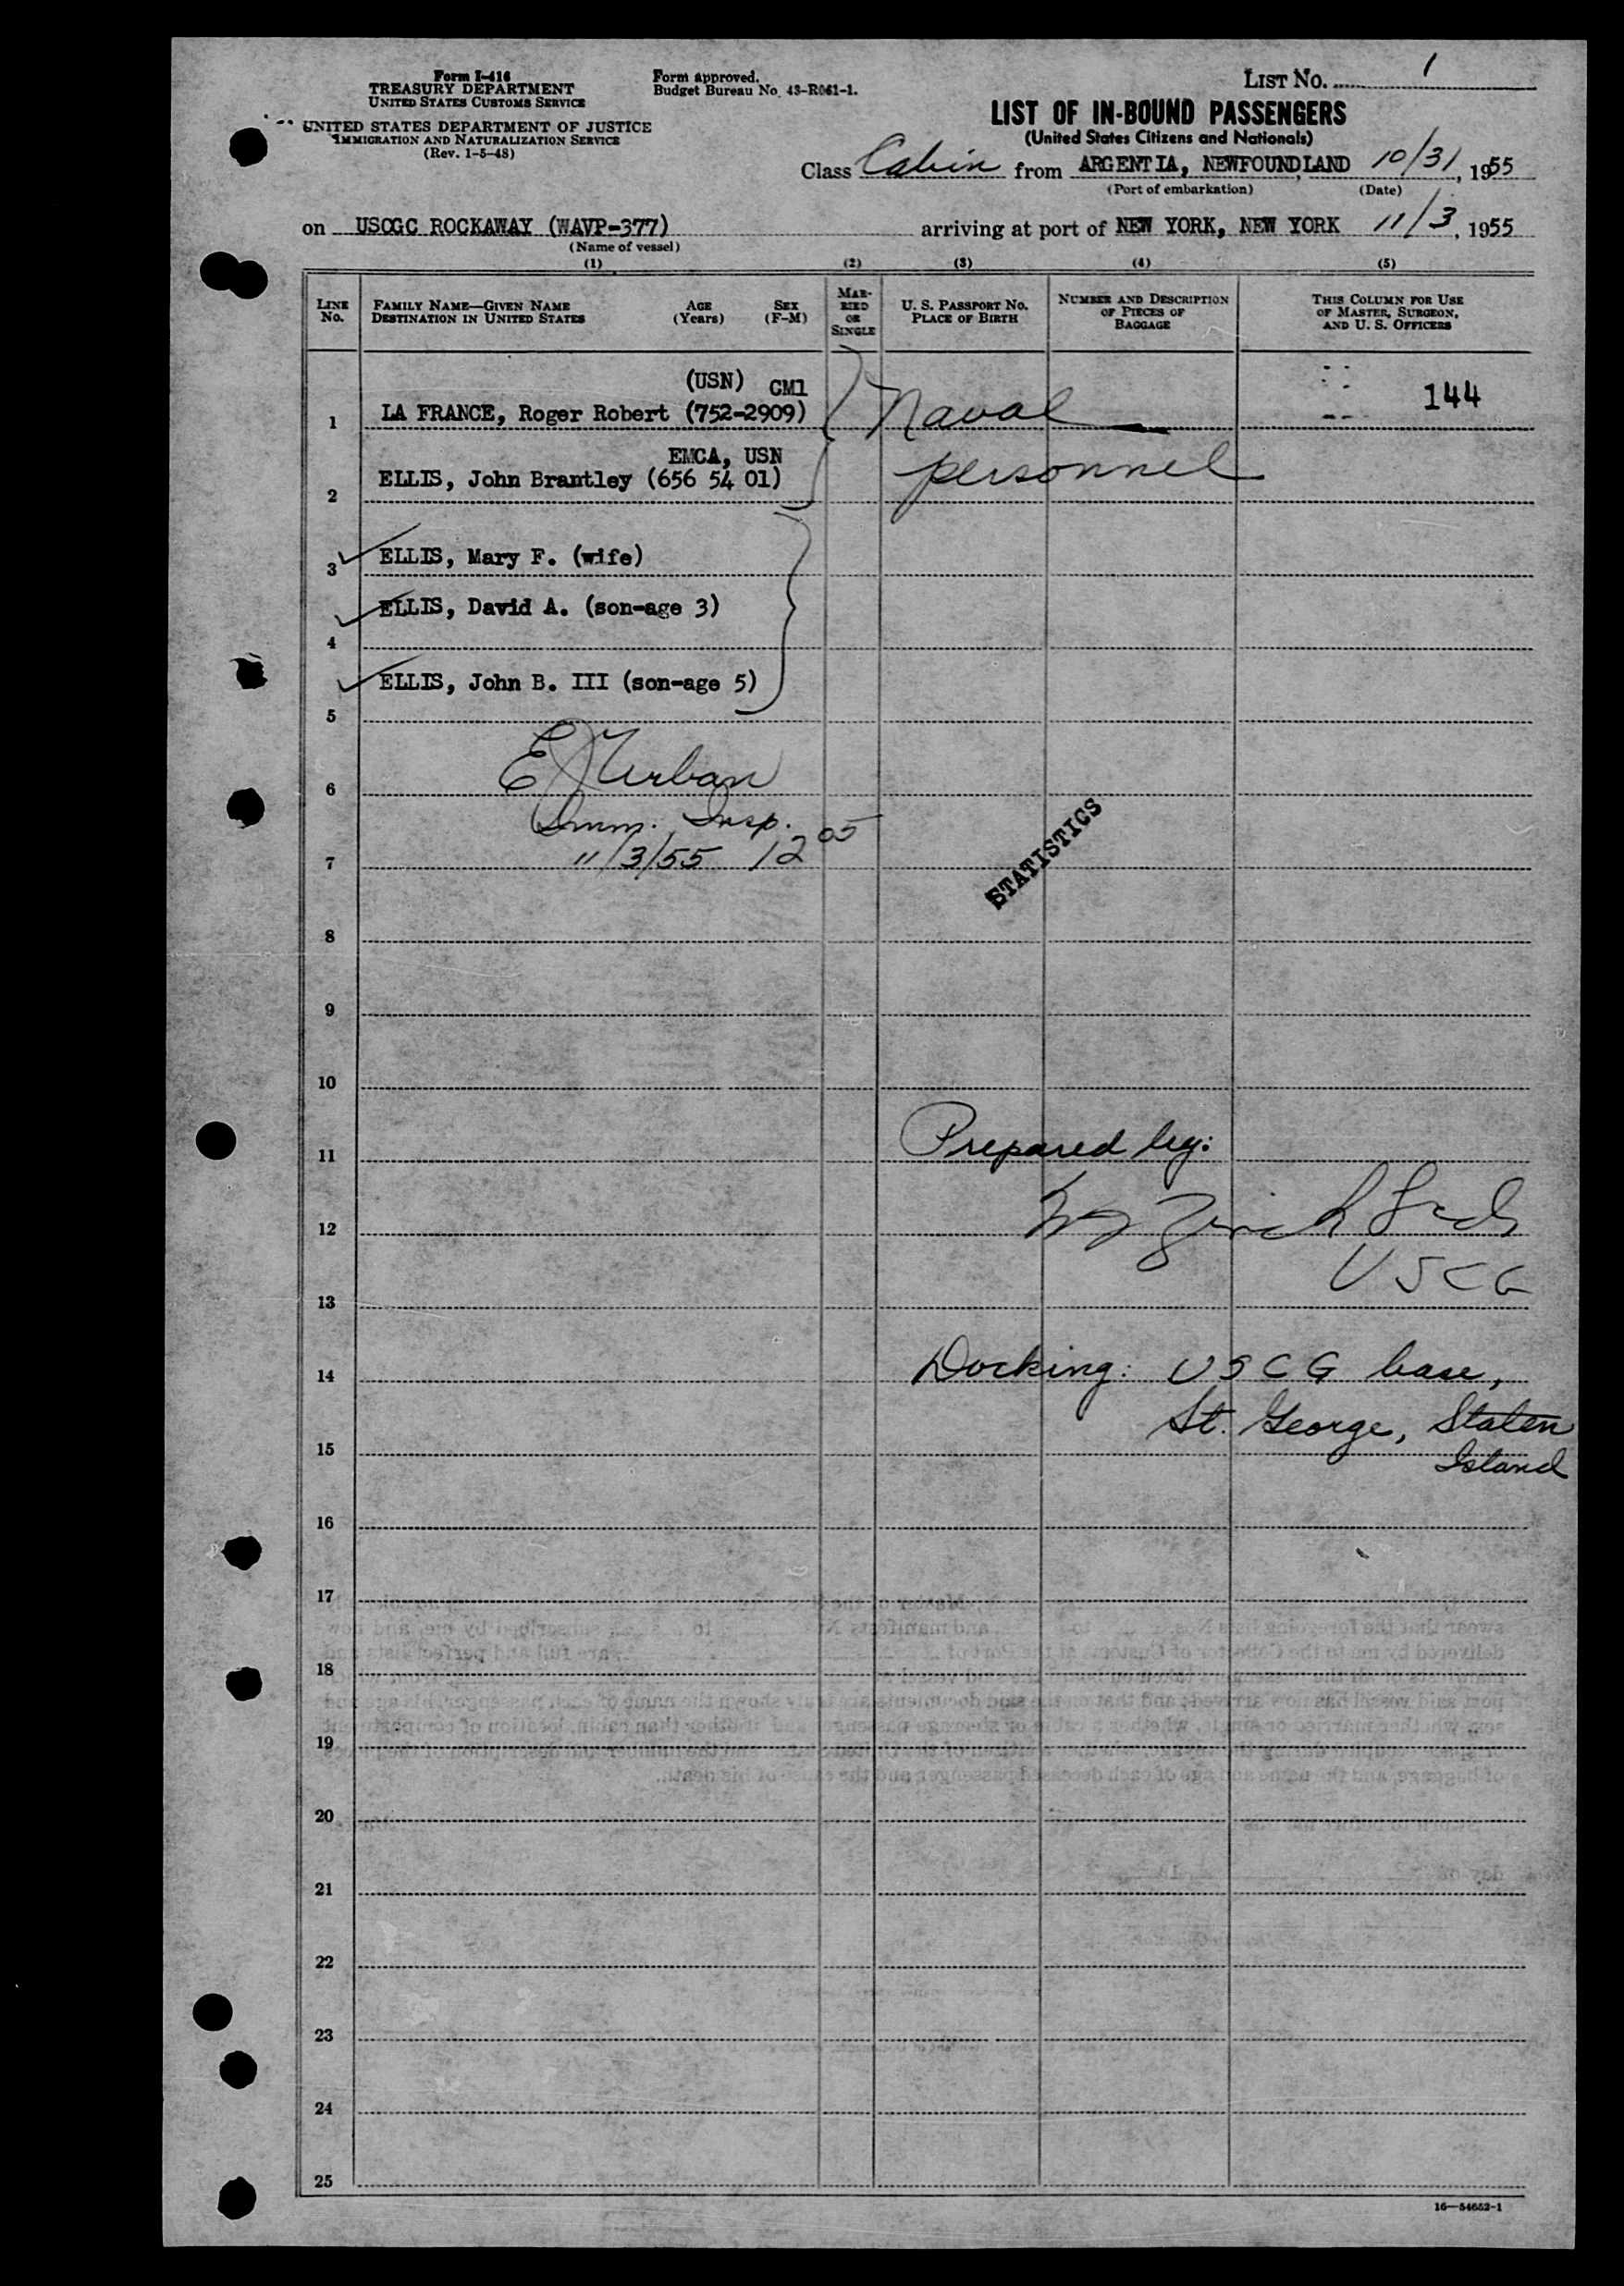 Form I-416
TREASURY DEPARTMENT
UNITED STATES CUSTOMS SERVICE
UNITED STATES DEPARTMENT OF JUSTICE
IMMIGRATION AND NATURALIZATION SERVICE
(Rev. 1-5-48)
Form approved.
Budget Bureau No. 43-R061-1.
LIST NO. 1
LIST OF IN-BOUND PASSENGERS
(United States Citizens and Nationals)
Class Cabin from ARGENTIA, NEWFOUNDLAND 10/31, 1955
(Port of embarkation) (Date)
on USCGC ROCKAWAY (WAVP-377) arriving at port of NEW YORK, NEW YORK 11/3, 1955
(Name of vessel)
(1) (2) (3) (4) (5)
LINE No. FAMILY NAME—GIVEN NAME DESTINATION IN UNITED STATES AGE (Years) SEX (F-M) MARRIED OR SINGLE U. S. PASSPORT NO. PLACE OF BIRTH NUMBER AND DESCRIPTION OF PIECES OF BAGGAGE THIS COLUMN FOR USE OF MASTER, SURGEON, AND U. S. OFFICERS
(USN) GM1
1 LA FRANCE, Roger Robert (752-2909) Naval 144
EMCA, USN
2 ELLIS, John Brantley (656 54 01) personnel
3 ELLIS, Mary F. (wife)
4 ELLIS, David A. (son-age 3)
5 ELLIS, John B. III (son-age 5)
6 E J Urban
Imm. Insp.
7 11/3/55 12 05
STATISTICS
8
9
10
11 Prepared by:
12
USCG
13
14 Docking: USCG base,
St. George, Staten
15 Island
16
17
18
19
20
21
22
23
24
25
16—54652-1